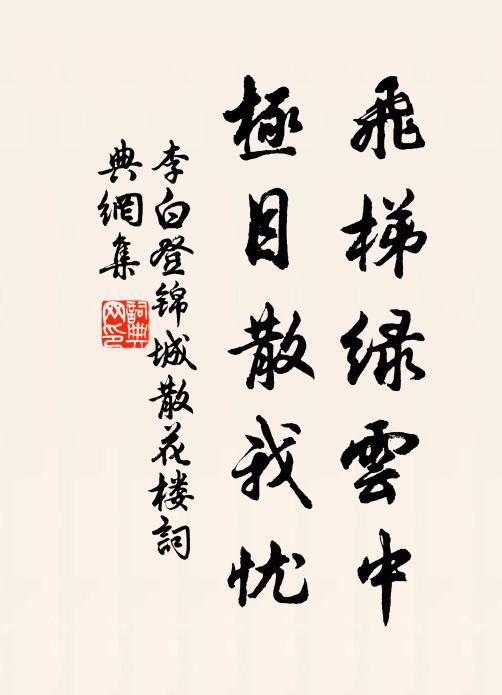 飛梯緑雲中
極目散我忧
李白登锦城散花楼詞
典網集
詞典網印